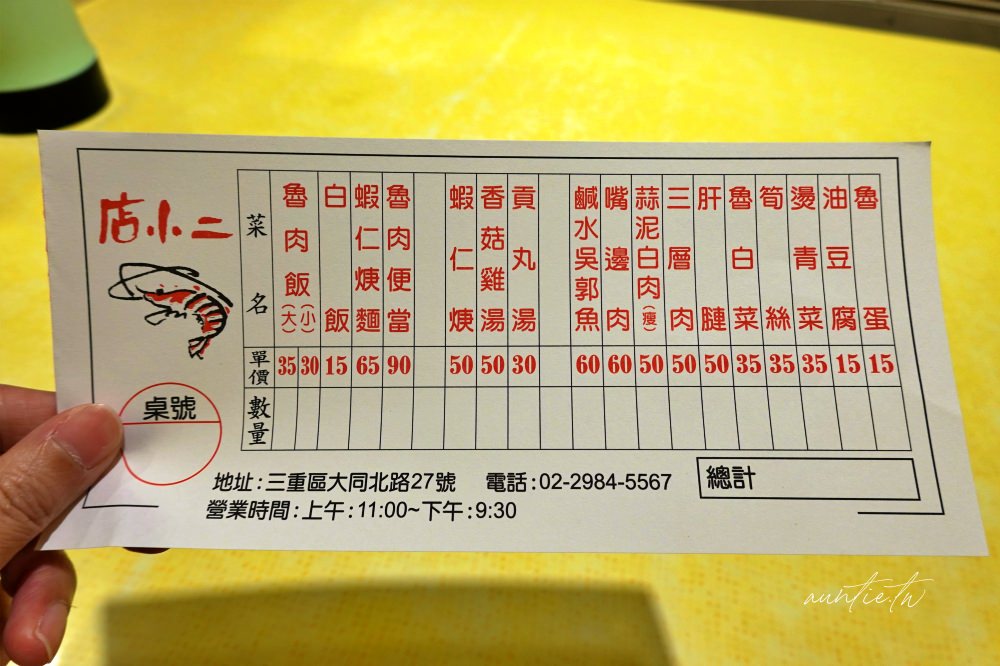 店小二
桌號
菜名
單價
數量
魯肉飯(大)(小)
35 30
白飯
15
蝦仁焿麵
65
魯肉便當
90
蝦仁焿
50
香菇雞湯
50
貢丸湯
30
鹹水吳郭魚
60
嘴邊肉
60
蒜泥白肉(瘦)
50
三層肉
50
肝腱
50
魯白菜
35
筍絲
35
燙青菜
35
油豆腐
15
魯蛋
15
地址:三重區大同北路27號 電話:02-2984-5567
營業時間:上午:11:00~下午:9:30
總計
auntie.tw